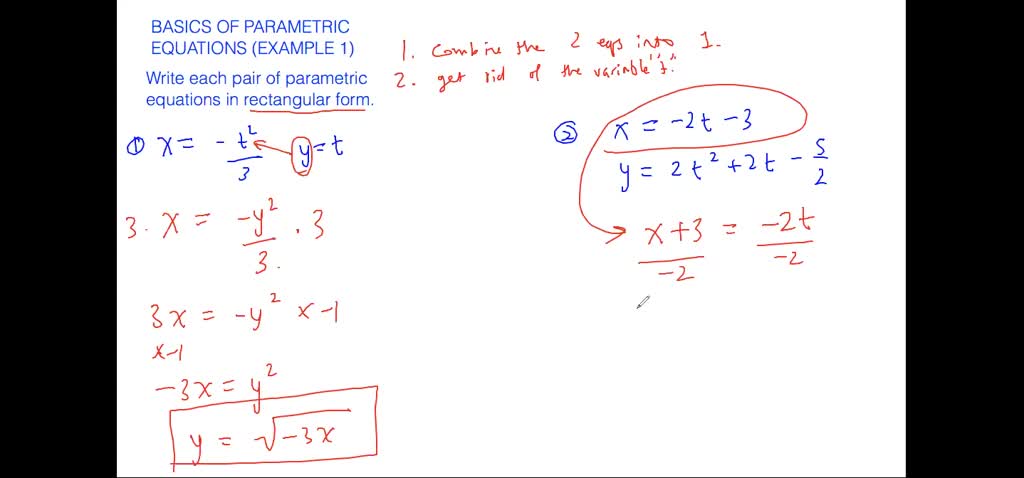 BASICS OF PARAMETRIC
EQUATIONS (EXAMPLE 1)
Write each pair of parametric
equations in rectangular form.
1. Combine the 2 eqs into 1.
2. get rid of the variable "t".
① x = -t²/3 y = t
3. x = -y²/3 . 3
3x = -y² x -1
x -1
-3x = y²
y = √-3x
② x = -2t - 3
y = 2t² + 2t - 5/2
x+3/-2 = -2t/-2